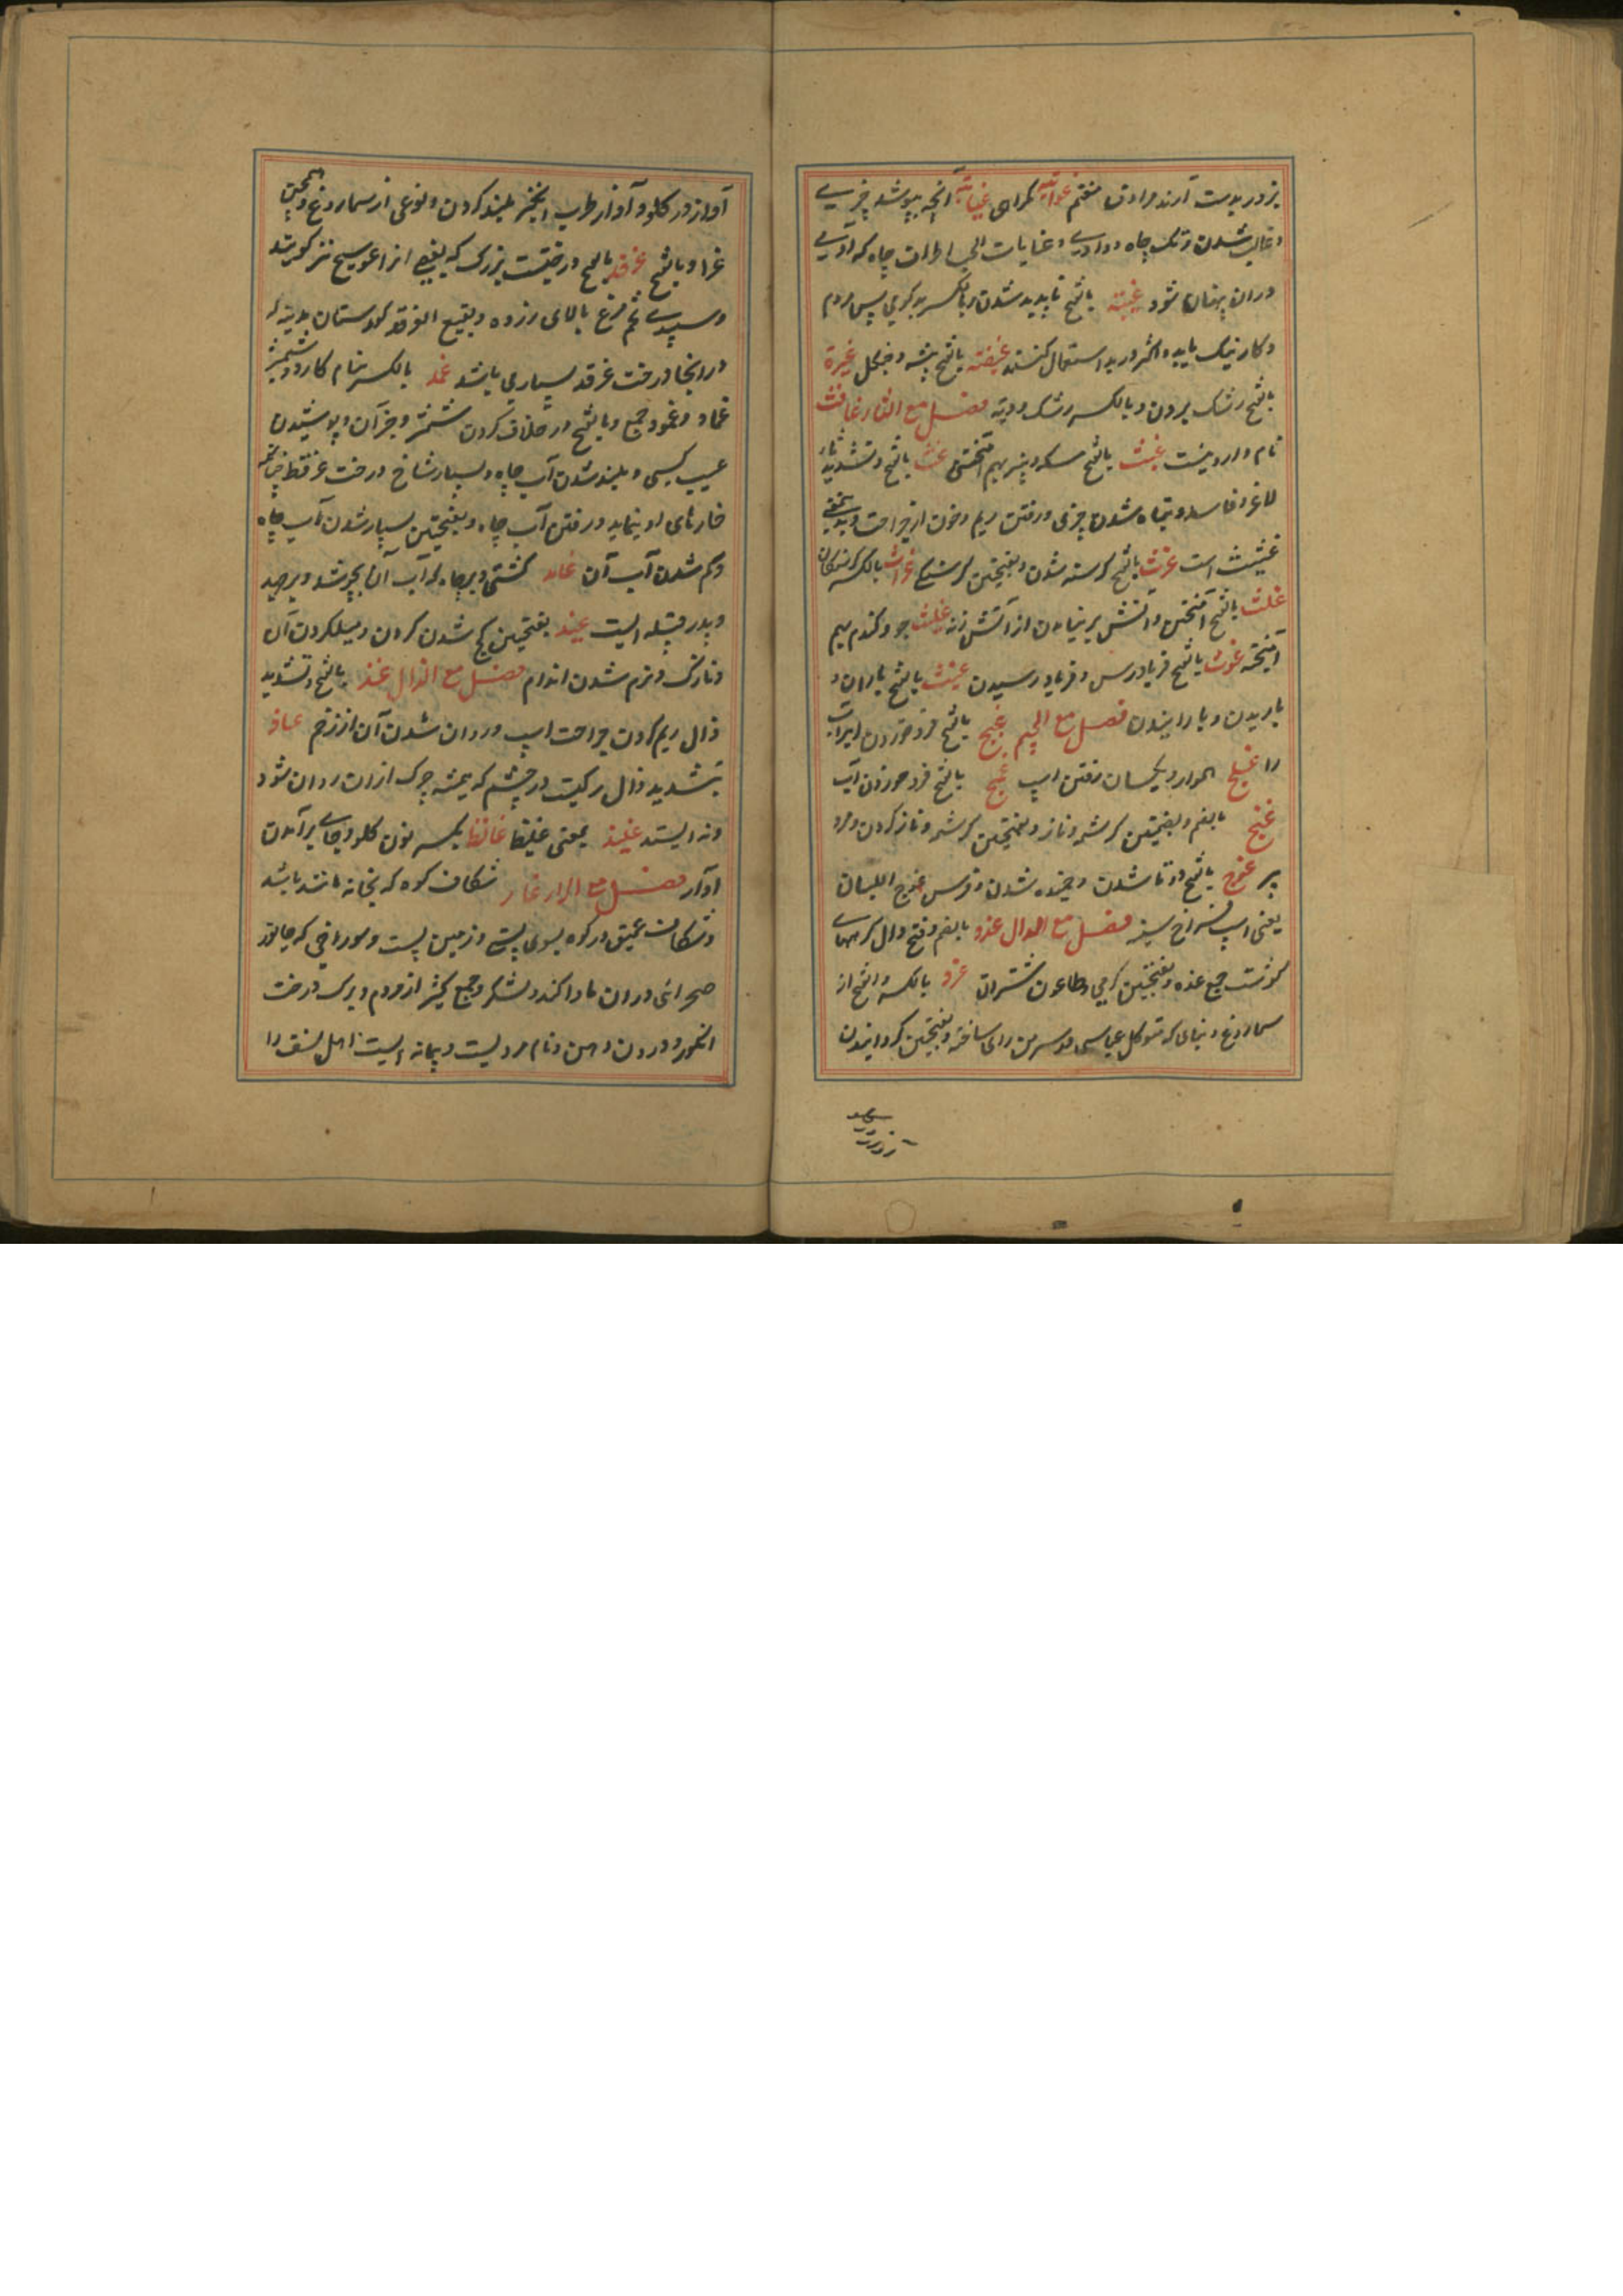 بزور بدست آرند مرادف مغنم غوایه گمراهی غیابة آنچه بپوشد چیزی
و غایب شدن و تک چاه و وادی و غیابات الجب اطراف چاه که آدمی
دران پنهان شود غیبة بالفتح ناپدید شدن و بالکسر بدگویی پس مردم
و کار نیک باید و اکثر در بد استعمال کنند غیضه بالفتح بیشه و جنگل غیرة
بالفتح رشک بردن و بالکسر رشک و دیة فصل مع الثاء غافث
نام دارویست غبث بالفتح مسکه و پنیر بهم آمیختن غث بالفتح و تشدید ثاء
لاغر و فاسد و تباه شدن چیزی و رفتن ریم و خون از جراحت و بدین معنی
غثیث است غرث بالفتح گرسنه شدن و بفتحتین گرسنگی غراث بالکسر گرسنگان
غلث بالفتح آمیختن و آتش بر نیامدن از آتش زنه غلیث جو و گندم بهم
آمیخته غوث بالفتح فریادرس و فریاد رسیدن غیث بالفتح باران و
باریدن و بارانیدن فصل مع الجیم غبج بالفتح فرو خوردن آب
را غلج هموار و یکسان رفتن اسپ غمج بالفتح فرو خوردن آب
غنج بالضم و بضمتین کرشمه و ناز و بفتحتین کرشمه و ناز کردن و مرد
پیر غوج بالفتح دوتا شدن و خمیده شدن و فرس غوج اللبان
یعنی اسپ فراخ سینه فصل مع الدال غدد بالضم و فتح دال گرههای
گوشت جمع غده و بفتحتین گرمی و طاعون شتران غرد بالکسر و الفتح از
سماروغ و بنای که متوکل عباسی در سرمن رای ساخته و بفتحتین گردانیدن
آواز در گلو و آواز طرب انگیز بلند کردن و نوعی از سماروغ و همچنین
غراد بالفتح غرقد بالفتح درختیست بزرگ که بعضی آنرا عوسج نیز گویند
و سپیدی تخم مرغ بالای زرده و بقیع الغرقد گورستان مدینه که
در آنجا درخت غرقد بسیاری باشد غمد بالکسر نیام کارد و شمشیر
غماد و غمود جمع و بالفتح در غلاف کردن شمشیر و جز آن و پوشیدن
عیب کسی و بلند شدن آب چاه و بسیار شاخ درخت غرقط چنانکه
خارهای او ننماید و رفتن آب چاه و بفتحتین بسیار شدن آب چاه
و کم شدن آب آن غامد کشتی پر و چاه که آب آن
و پدر قبیله ایست غید بفتحتین کج شدن گردن و میل کردن آن
و نازک و نرم شدن اندام فصل مع الذال غذ بالفتح و تشدید
ذال ریم کردن جراحت اسپ و روان شدن آن از زخم غاذ
بتشدید ذال رگیست در چشم که همیشه چرک ازان روان شود
و نه ایستد غلیذ بمعنی غلیظ غانذ بکسر نون گلو و جای برآمدن
آواز فصل مع الراء غار شکاف کوه که بخانه مانند باشد
و شکاف عمیق در کوه بسوی پستی و زمین پست و سوراخی که جانور
صحرائی دران ماوا کند و لشکر و جمع کثیر از مردم و برگ درخت
انگور و درون دهن و نام مردیست و پیمانه ایست اهل نسف را